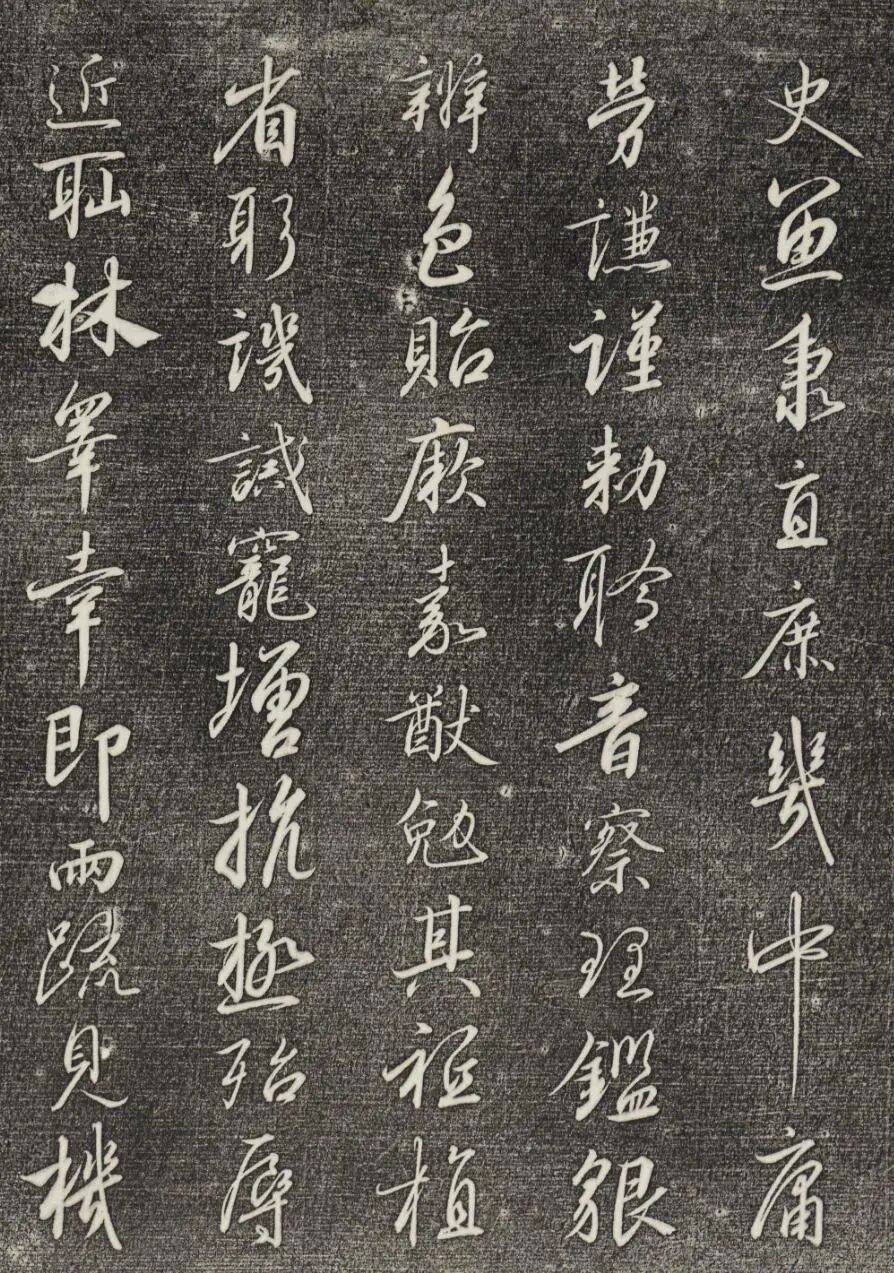 史魚秉直庶幾中庸
勞謙謹勅聆音察理鑑貌
辨色貽厥嘉猷勉其祗植
省躬譏誡寵增抗極殆辱
近恥林皋幸即兩疏見機